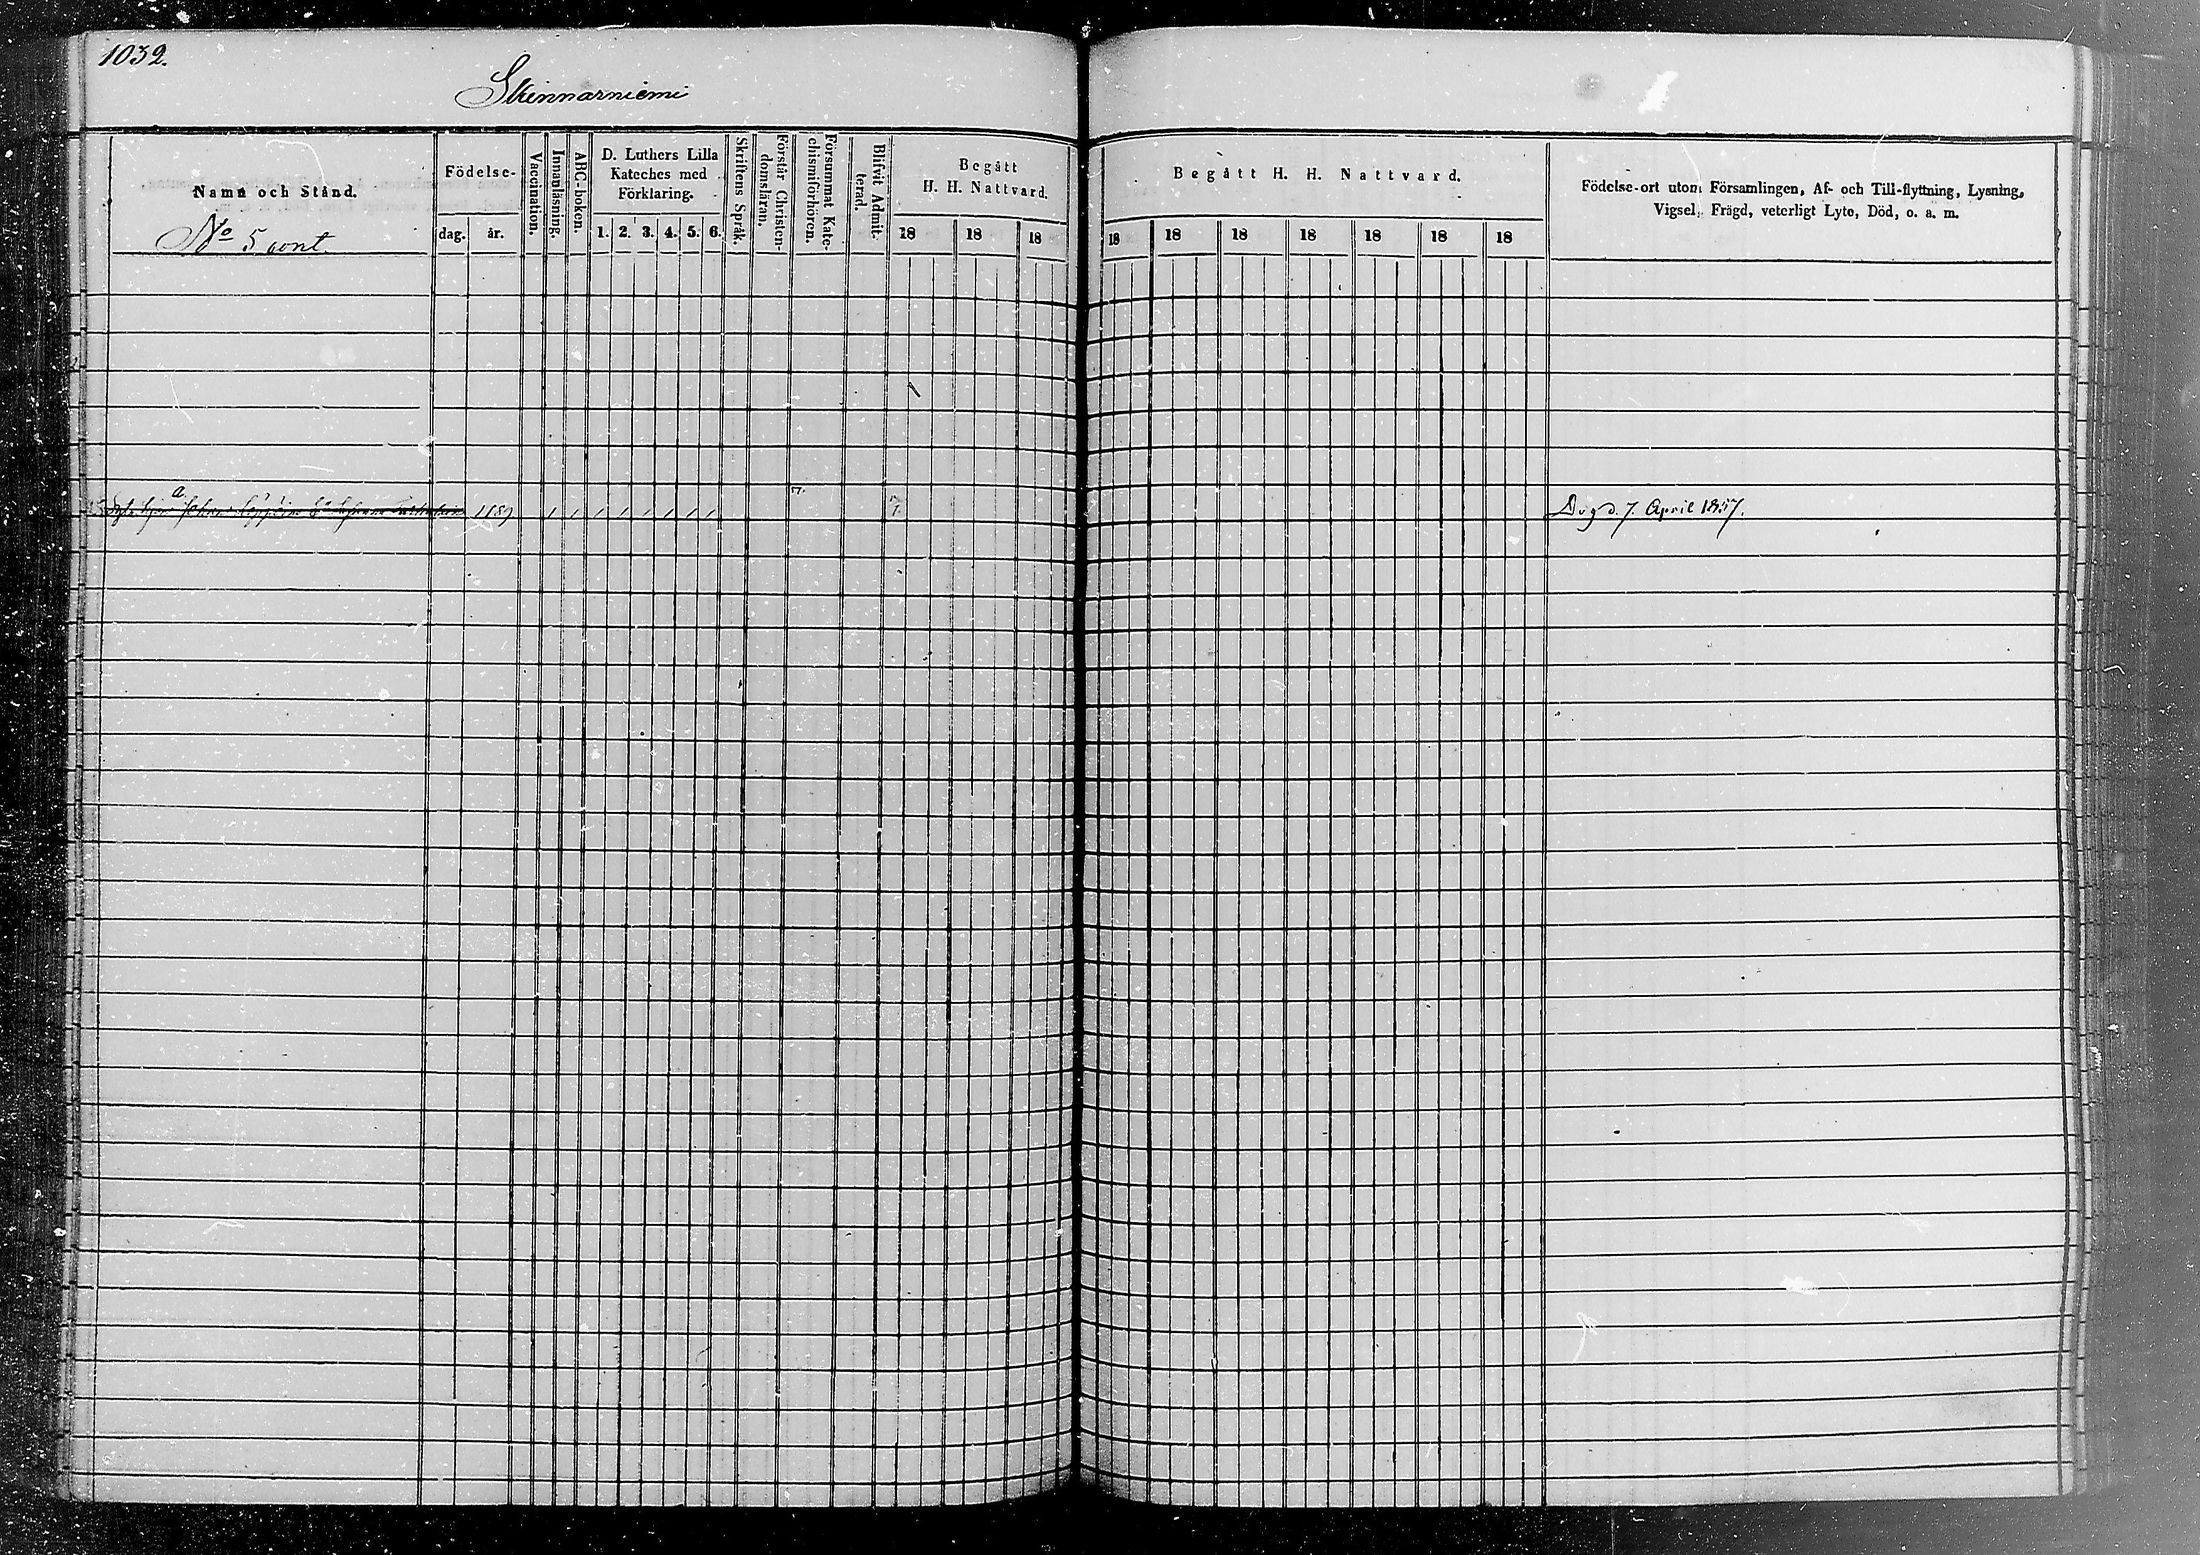 1032.
Skinnarniemi
Namn och Stånd.
No 5 cont.
Födelse-
dag. år.
Vaccination.
Innanläsning.
ABC-boken.
D. Luthers Lilla
Kateches med
Förklaring.
1. 2. 3. 4. 5. 6.
Skriftens Språk.
Förstår Christen-
domsläran.
Försummat Kate-
chismiförhören.
Blifvit Admit-
terad.
Begått
H. H. Nattvard.
18 18 18
Begått H. H. Nattvard.
18 18 18 18 18 18 18
Födelse-ort utom Församlingen, Af- och Till-flyttning, Lysning,
Vigsel, Frägd, veterligt Lyte, Död, o. a. m.
a
Johan
7.
7
7
Dog d. 7. April 1857.